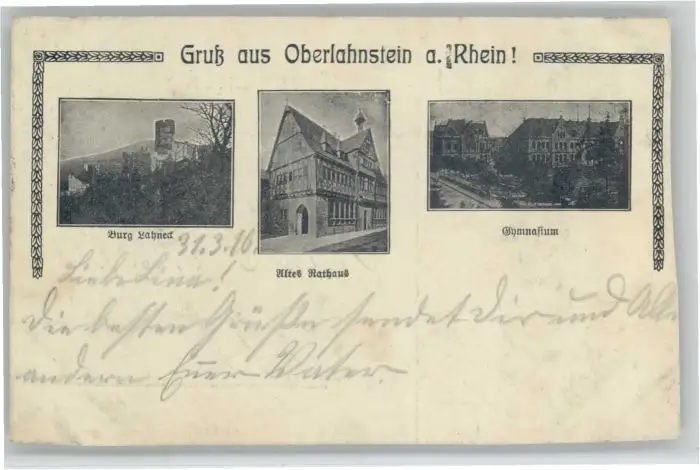 Gruß aus Oberlahnstein a. Rhein!
Burg Lahneck
Altes Rathaus
Gymnasium
31.3.10
Liebe Lina!
Die besten Grüße sendet Dir und All
andern Euer Vater.